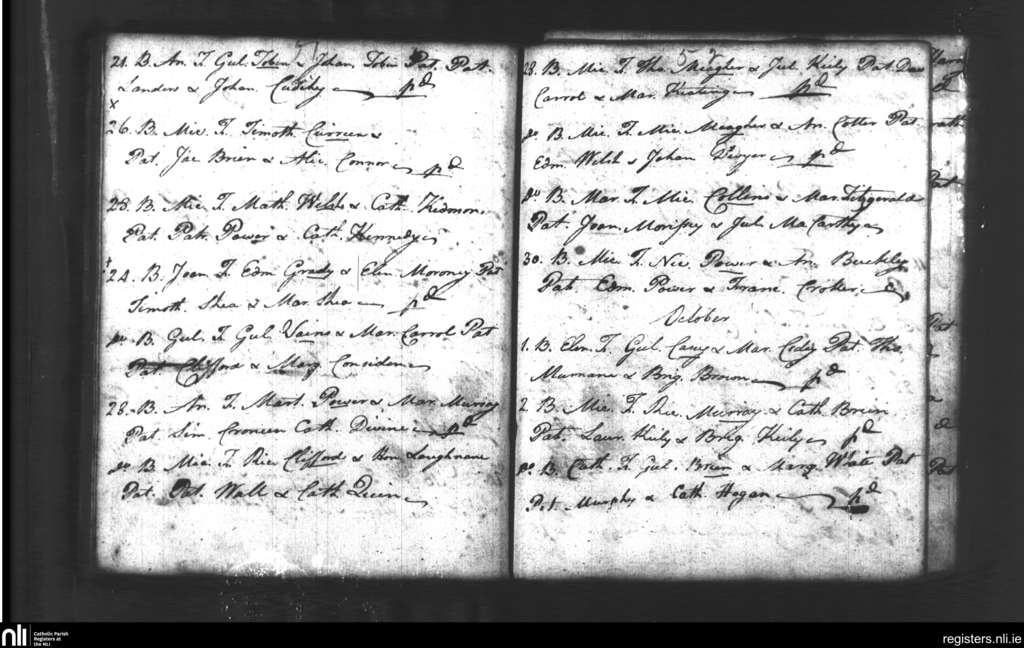 51
21. B. An. F. Gul. Tobin & Johan Tobin Pat. Pat.
Landers & Johan. Cudihy pd
x
26. B. Mic. F. Timoth. Curreen &
Pat. Jac Brien & Alic. Connor pd
28. B. Mic. F. Math. Welsh & Cath. Kidmon
Pat. Patr. Power & Cath. Hennedy
24. B. Joan. F. Edm Grady & Elen. Moroney Pat
Timoth. Shea & Mar. Shea pd
do B. Gul. F. Gul. Vains & Mar. Carrol Pat
Pat Clifford & Marg. Considen
28. B. An. F. Mart. Power & Mar. Murray
Pat. Sim. Croneen Cath. Divine pd
do B. Mic. F. Ric. Clifford & Hon. Loughnane
Pat. Pat. Wall & Cath. Quin
52
28. B. Mic. F. Tho. Meagher & Jul. Kiely Pat. Dav
Carrol & Mar. Keating pd
do B. Mic. F. Mic. Meagher & An. Cotter Pat
Edm. Welsh & Johan Dwyer pd
do B. Mar. F. Mic. Collins & Mar. Fitzgerald
Pat. Joan. Morissey & Jul. MaCarthy
30. B. Mic. F. Nic. Power & An. Buckley
Pat Edm. Power & Franc. Croker
October
1. B. Elen. F. Gul. Casey & Mar. Pat. Tho.
Murnane & Brig. Brown pd
2 B. Mic. F. Ric. Murray & Cath. Brien
Pat. Laur. Kiely & Brig. Kiely pd
do B. Cath. F. Gul. Brien & Marg. White Pat
Pat. Murphy & Cath. Hogan pd
nli
Catholic Parish
Registers at
the NLI
registers.nli.ie